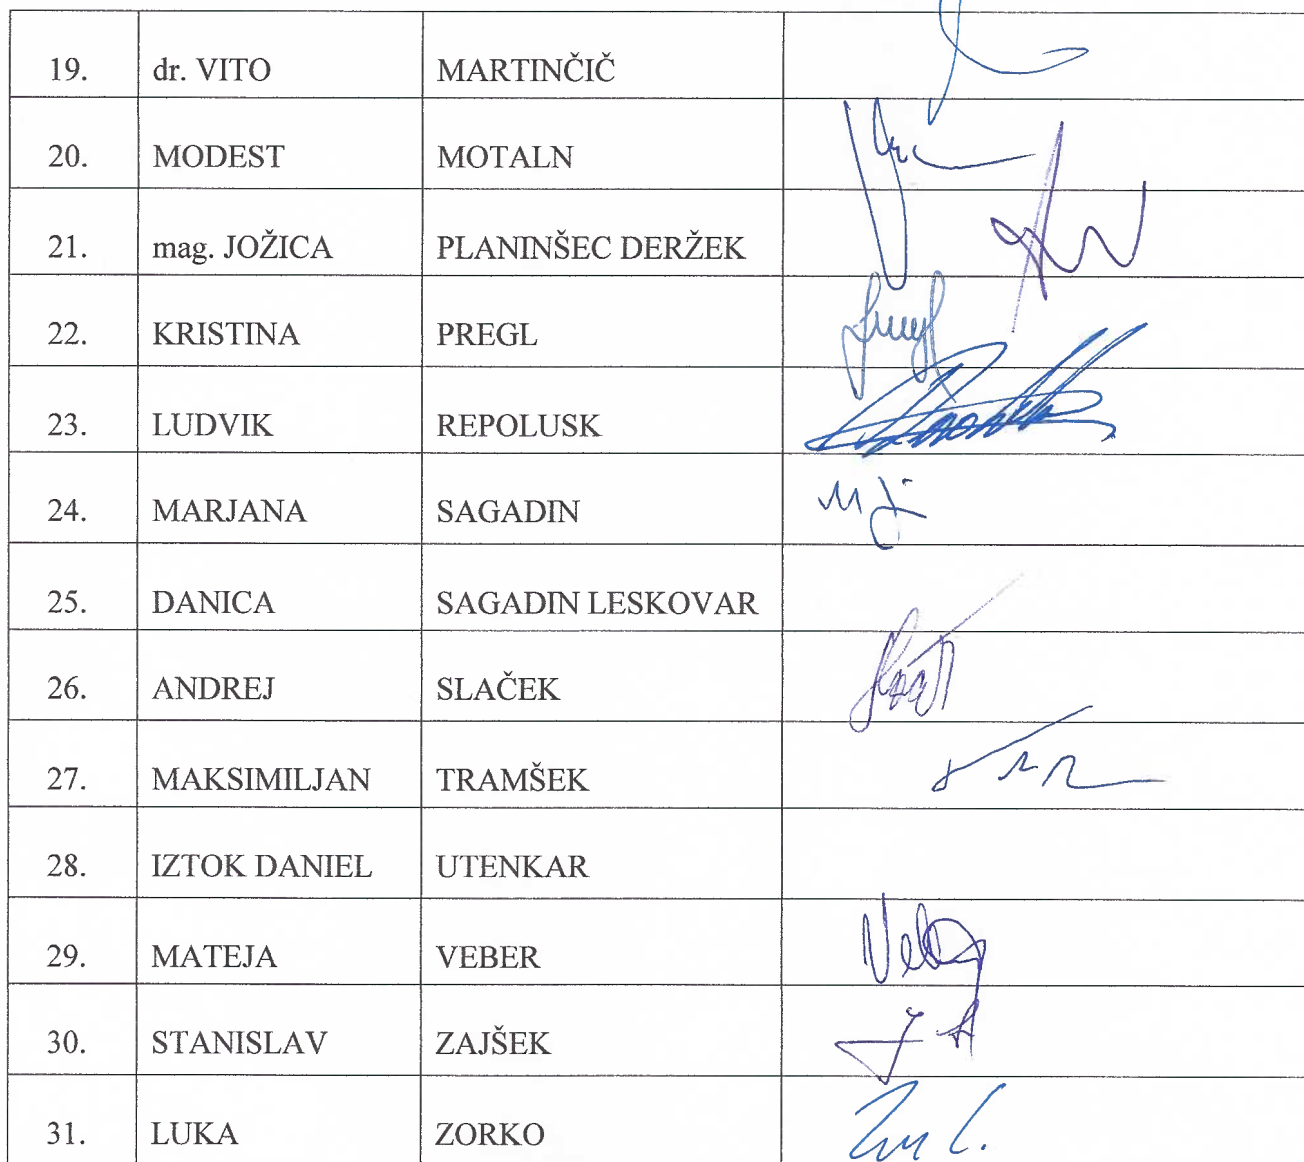 19. dr. VITO MARTINČIČ
20. MODEST MOTALN
21. mag. JOŽICA PLANINŠEC DERŽEK
22. KRISTINA PREGL
23. LUDVIK REPOLUSK
24. MARJANA SAGADIN
25. DANICA SAGADIN LESKOVAR
26. ANDREJ SLAČEK
27. MAKSIMILJAN TRAMŠEK
28. IZTOK DANIEL UTENKAR
29. MATEJA VEBER
30. STANISLAV ZAJŠEK
31. LUKA ZORKO